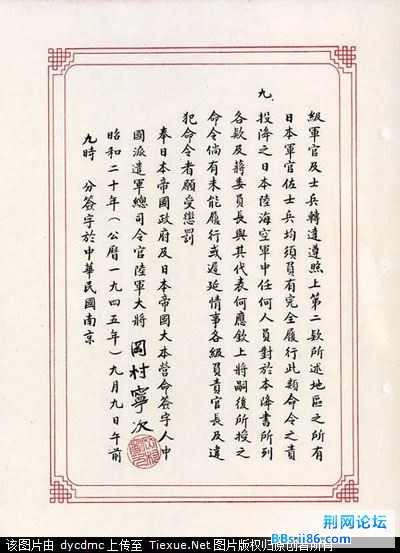 級軍官及士兵轉達遵照上第二欵所述地區之所有
日本軍官佐士兵均須負有完全履行此類命令之責
九、投降之日本陸海空軍中任何人員對於本降書所列
各欵及蔣委員長與其代表何應欽上將嗣後所授之
命令倘有未能履行或遲延情事各級負責官長及違
犯命令者願受懲罰
奉日本帝國政府及日本帝國大本營命簽字人中
國派遣軍總司令官陸軍大將 岡村寧次
昭和二十年(公曆一九四五年)九月九日午前
九時 分簽字於中華民國南京
荆网论坛
BBs.ii86.com
该图片由 dycdmc 上传至 Tiexue.Net 图片版权归原创者所有